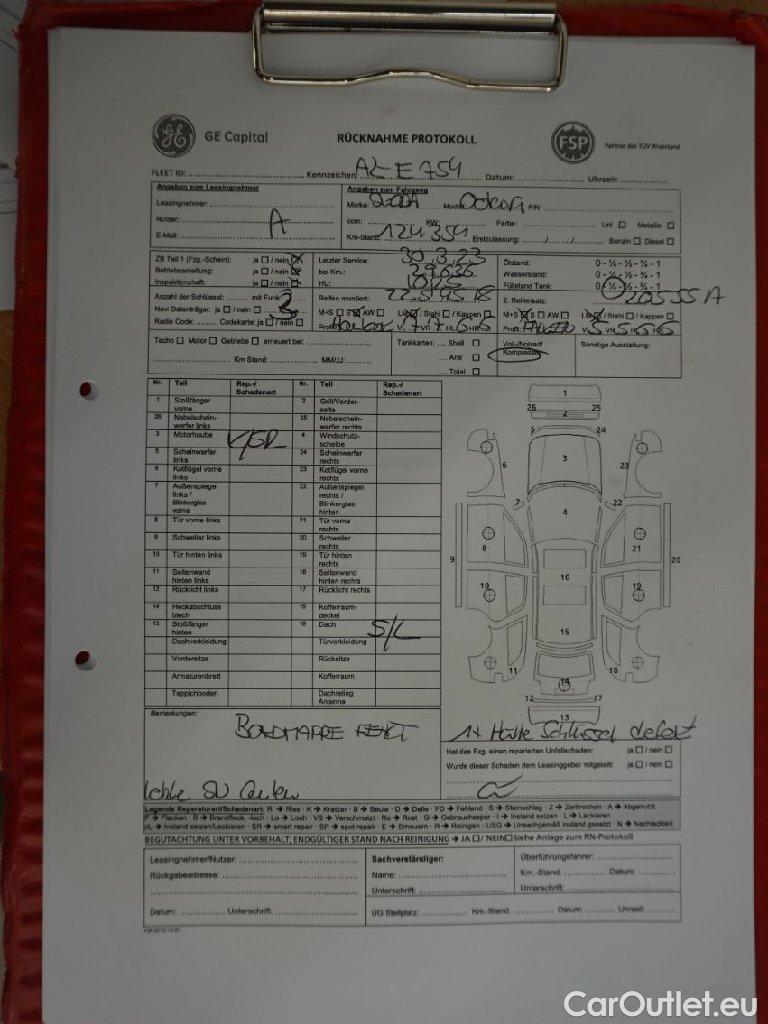 GE Capital
RÜCKNAHME PROTOKOLL
FSP
Partner des TÜV Rheinland
FLEET ID: Kennzeichen: AZ-E 754 Datum: Uhrzeit:
Angaben zum Leasingnehmer
Leasingnehmer:
Nutzer: A
E-Mail:
Angaben zum Fahrzeug
Marke: Skoda Model: Octavia FIN
ccm: KW: Farbe: Uni ☐ Metallic ☐
Km-Stand: 124 354 Erstzulassung: Benzin ☐ Diesel ☐
ZB Teil 1 (Fzg.-Schein): ja ☐ / nein ☒
Betriebsanleitung: ja ☐ / nein ☒
Inspektionsheft: ja ☐ / nein ☒
Letzter Service: 30.3.23
bei Km.:
HU:
Ölstand: 0 - ¼ - ½ - ¾ - 1
Wasserstand: 0 - ¼ - ½ - ¾ - 1
Füllstand Tank: 0 - ¼ - ½ - ¾ - 1
Anzahl der Schlüssel: mit Funk:
Navi Datenträger: ja ☐ / nein ☐
Radio Code: Codekarte: ja ☐ / nein ☐
Reifen montiert: 225 45 18
M+S ☐ S ☒ AW ☐ LM ☐ / Stahl ☐ / Kappen ☐
2. Reifensatz: 205 55
M+S ☒ S ☐ AW ☐ LM ☐ / Stahl ☐ / Kappen ☐
Profil: VL 5 VR 5 HL 5 HR 5
Tacho ☐ Motor ☐ Getriebe ☐ erneuert bei:
Km Stand: MM/JJ:
Tankkarten: Shell ☐
Aral ☐
Total ☐
Vol./Notrad/
Kompressor
Sonstige Ausstattung:
Nr. Teil Rep.-/ Schadenart Nr. Teil Rep.-/ Schadenart
1 Stoßfänger vorne 2 Grill/Vorderseite
26 Nebelscheinwerfer links 25 Nebelscheinwerfer rechts
3 Motorhaube 4 Windschutzscheibe
5 Scheinwerfer links 24 Scheinwerfer rechts
6 Kotflügel vorne links 23 Kotflügel vorne rechts
7 Außenspiegel links / Blinkerglas vorne 22 Außenspiegel rechts / Blinkerglas hinten
8 Tür vorne links 21 Tür vorne rechts
9 Schweller links 20 Schweller rechts
10 Tür hinten links 19 Tür hinten rechts
11 Seitenwand hinten links 18 Seitenwand hinten rechts
12 Rücklicht links 17 Rücklicht rechts
14 Heckabschlussblech 15 Kofferraumdeckel
13 Stoßfänger hinten 16 Dach S/L
Dachverkleidung Türverkleidung
Vordersitze Rücksitze
Armaturenbrett Kofferraum
Teppichboden Dachreling Antenne
Bemerkungen:
BORDMAPPE FEHLT
1x Hülle Schlüssel defekt
Hat das Fzg. einen reparierten Unfallschaden: ja ☐ / nein ☐
Wurde dieser Schaden dem Leasinggeber mitgeteilt: ja ☐ / nein ☐
Legende Reparaturart/Schadenart: R → Riss · K → Kratzer · B → Beule · D → Delle · FD → Fehlend · S → Steinschlag · Z → Zerbrochen · A → Abgenutzt
F → Flecken · B → Brandfleck, -loch · Lo → Loch · VS → Verschmutzt · Ro → Rost · G → Gebrauchsspur · I → Instand setzen · L → Lackieren
I/L → Instand setzen/Lackieren · SR → smart repair · SP → spot repair · E → Erneuern · R → Reinigen · USG → Unsachgemäß instand gesetzt · N → Nachlackiert
BEGUTACHTUNG UNTER VORBEHALT, ENDGÜLTIGER STAND NACH REINIGUNG → JA ☐ / NEIN ☐ Siehe Anlage zum RN-Protokoll
Leasingnehmer/Nutzer:
Rückgabeadresse:
Datum: Unterschrift:
Sachverständiger:
Name:
Unterschrift:
Überführungsfahrer:
Km.-Stand: Datum
Unterschrift:
ÜG Stellplatz: Km.-Stand: Datum: Uhrzeit:
CarOutlet.eu